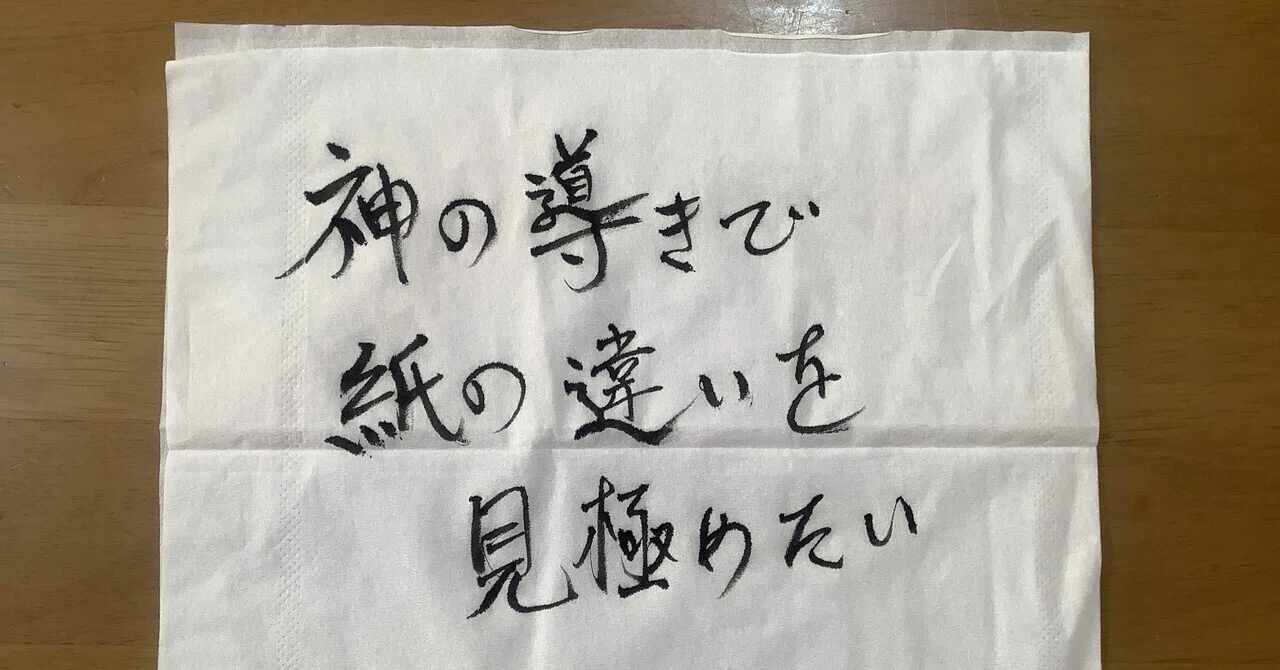 神の導きで
紙の違いを
見極めたい